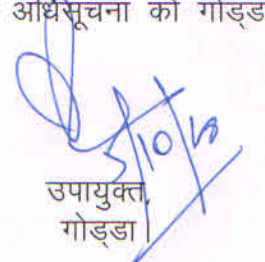 अधिसूचना को गोड्ड
5/10/18
उपायुक्त,
गोड्डा।